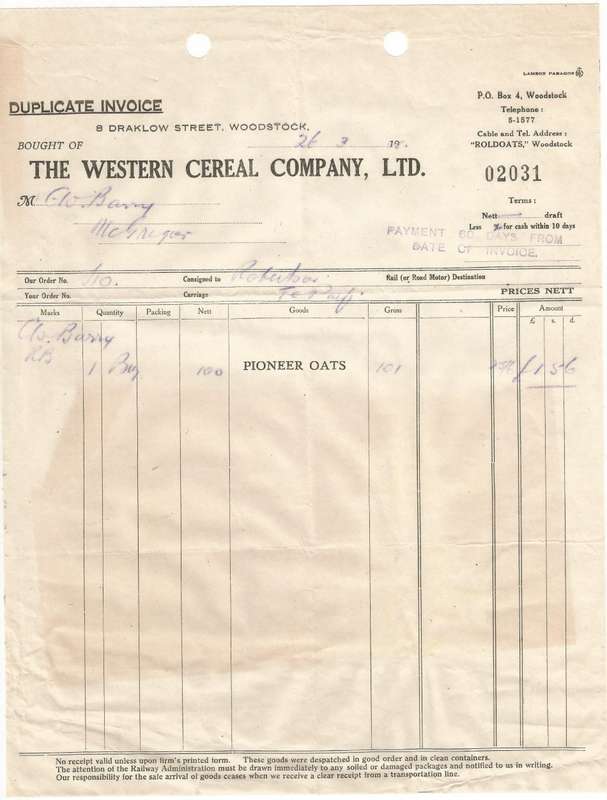 LAMSON PARAGON
P.O. Box 4, Woodstock
Telephone :
5-1577
Cable and Tel. Address :
"ROLDOATS," Woodstock
DUPLICATE INVOICE
8 DRAKLOW STREET, WOODSTOCK,
BOUGHT OF 26 3 19
THE WESTERN CEREAL COMPANY, LTD.
02031
M Barry
McGregor
Terms :
Nett draft
Less % for cash within 10 days
PAYMENT 60 DAYS FROM
DATE OF INVOICE.
Our Order No. Consigned to Robertson Rail (or Road Motor) Destination
Your Order No. Carriage To PRICES NETT
Marks Quantity Packing Nett Goods Gross Price Amount
£ s. d.
Barry
RB 1 Bag 100 PIONEER OATS 101 £1 5 6
No receipt valid unless upon firm's printed form. These goods were despatched in good order and in clean containers.
The attention of the Railway Administration must be drawn immediately to any soiled or damaged packages and notified to us in writing.
Our responsibility for the safe arrival of goods ceases when we receive a clear receipt from a transportation line.